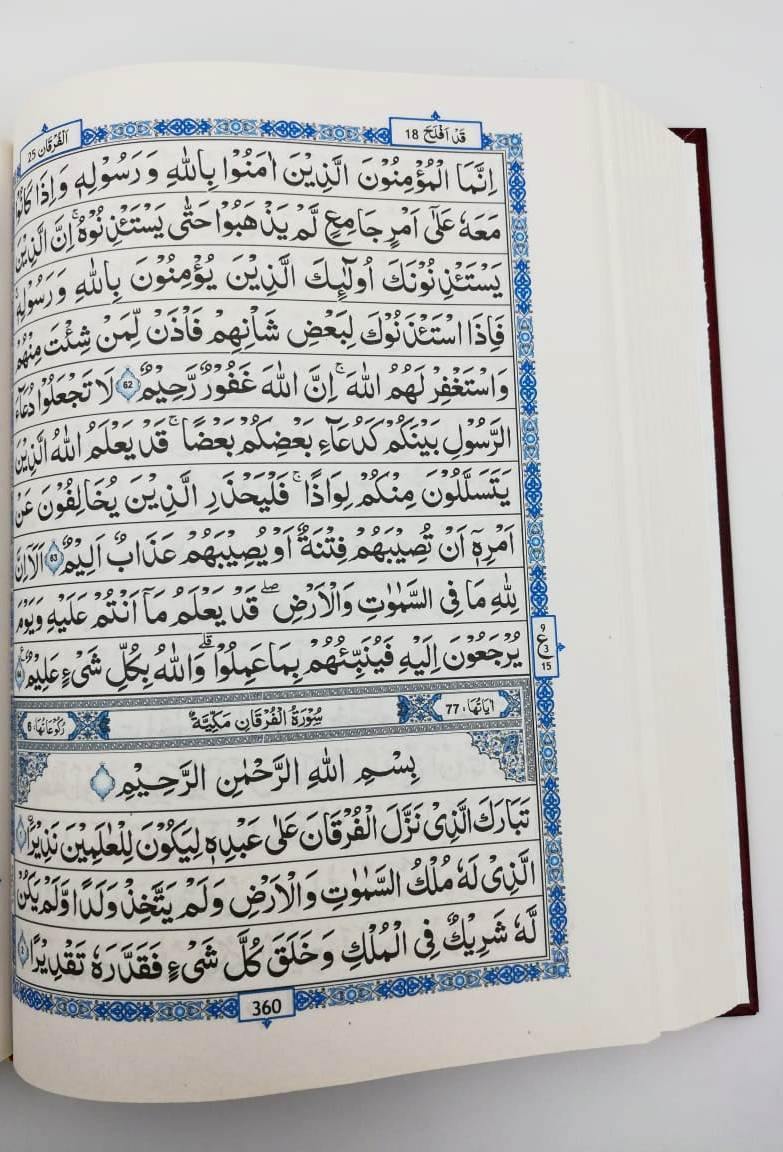 قَدْ اَفْلَحَ 18
اَلْفُرْقَان 25
اِنَّمَا الْمُؤْمِنُوْنَ الَّذِيْنَ اٰمَنُوْا بِاللّٰهِ وَ رَسُوْلِهٖ وَ اِذَا كَانُوْا
مَعَهٗ عَلٰٓى اَمْرٍ جَامِعٍ لَّمْ يَذْهَبُوْا حَتّٰى يَسْتَـْٔذِنُوْهُ ؕ اِنَّ الَّذِيْنَ
يَسْتَـْٔذِنُوْنَكَ اُولٰٓئِكَ الَّذِيْنَ يُؤْمِنُوْنَ بِاللّٰهِ وَ رَسُوْلِهٖ
فَاِذَا اسْتَـْٔذَنُوْكَ لِبَعْضِ شَاْنِهِمْ فَاْذَنْ لِّمَنْ شِئْتَ مِنْهُمْ
وَاسْتَغْفِرْ لَهُمُ اللّٰهَ ؕ اِنَّ اللّٰهَ غَفُوْرٌ رَّحِيْمٌ 62 لَا تَجْعَلُوْا دُعَآءَ
الرَّسُوْلِ بَيْنَكُمْ كَدُعَآءِ بَعْضِكُمْ بَعْضًا ؕ قَدْ يَعْلَمُ اللّٰهُ الَّذِيْنَ
يَتَسَلَّلُوْنَ مِنْكُمْ لِوَاذًا ۚ فَلْيَحْذَرِ الَّذِيْنَ يُخَالِفُوْنَ عَنْ
اَمْرِهٖٓ اَنْ تُصِيْبَهُمْ فِتْنَةٌ اَوْ يُصِيْبَهُمْ عَذَابٌ اَلِيْمٌ 63 اَلَآ اِنَّ
لِلّٰهِ مَا فِى السَّمٰوٰتِ وَالْاَرْضِ ؕ قَدْ يَعْلَمُ مَآ اَنْتُمْ عَلَيْهِ وَيَوْمَ
يُرْجَعُوْنَ اِلَيْهِ فَيُنَبِّئُهُمْ بِمَا عَمِلُوْا ؕ وَاللّٰهُ بِكُلِّ شَىْءٍ عَلِيْمٌ
9
ع
3
15
اٰيَاتُهَا، 77
سُوْرَةُ الْفُرْقَانِ مَكِّيَّةٌ
رُكُوْعَاتُهَا، 6
بِسْمِ اللّٰهِ الرَّحْمٰنِ الرَّحِيْمِ
تَبَارَكَ الَّذِىْ نَزَّلَ الْفُرْقَانَ عَلٰى عَبْدِهٖ لِيَكُوْنَ لِلْعٰلَمِيْنَ نَذِيْرًا
الَّذِىْ لَهٗ مُلْكُ السَّمٰوٰتِ وَالْاَرْضِ وَلَمْ يَتَّخِذْ وَلَدًا وَّلَمْ يَكُنْ
لَّهٗ شَرِيْكٌ فِى الْمُلْكِ وَخَلَقَ كُلَّ شَىْءٍ فَقَدَّرَهٗ تَقْدِيْرًا
360